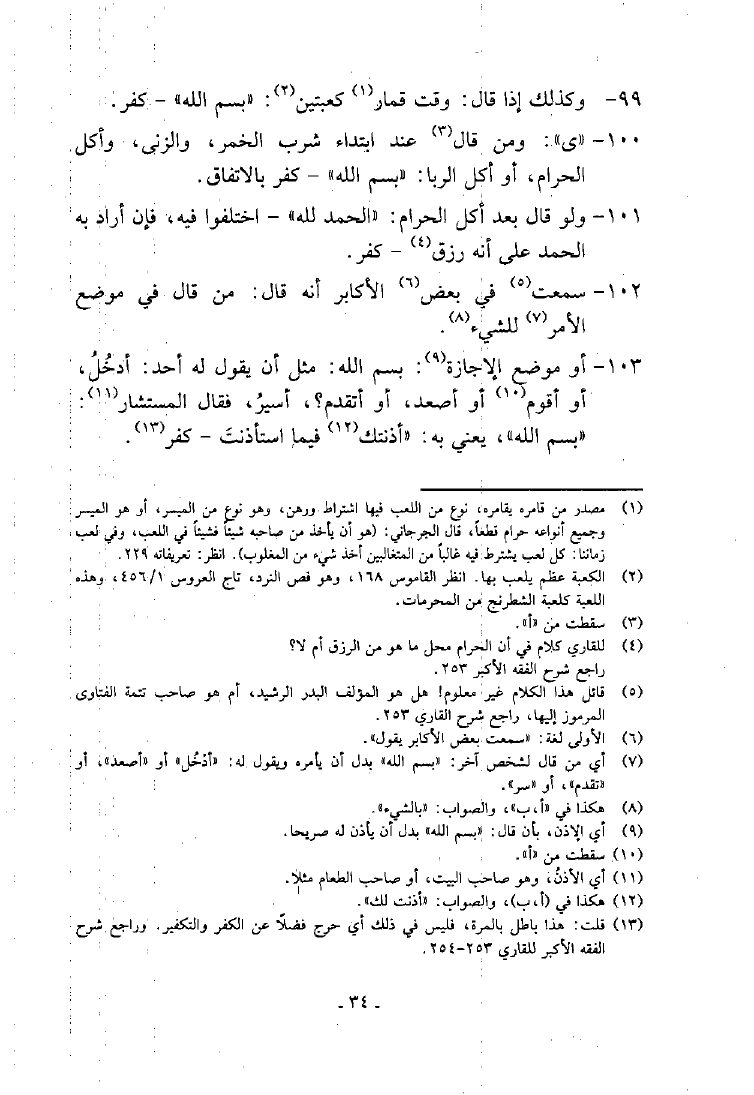 ٩٩- وكذلك إذا قال: وقت قمار(١) كعبتين(٢): «بسم الله» - كفر.
١٠٠- «ى»: ومن قال(٣) عند ابتداء شرب الخمر، والزنى، وأكل
الحرام، أو أكل الربا: «بسم الله» - كفر بالاتفاق.
١٠١- ولو قال بعد أكل الحرام: «الحمد لله» - اختلفوا فيه، فإن أراد به
الحمد على أنه رزق(٤) - كفر.
١٠٢- سمعت(٥) في بعض(٦) الأكابر أنه قال: من قال في موضع
الأمر(٧) للشيء(٨).
١٠٣- أو موضع الإجازة(٩): بسم الله: مثل أن يقول له أحد: أدخُلُ،
أو أقوم(١٠) أو أصعد، أو أتقدم؟، أسيرُ، فقال المستشار(١١):
«بسم الله»، يعني به: «أذنتك(١٢) فيما استأذنتَ - كفر(١٣).
(١) مصدر من قامره يقامره، نوع من اللعب فيها اشتراط ورهن، وهو نوع من الميسر، أو هو الميسر
وجميع أنواعه حرام قطعاً، قال الجرجاني: (هو أن يأخذ من صاحبه شيئاً فشيئاً في اللعب، وفي لعب
زماننا: كل لعب يشترط فيه غالباً من المتغالبين أخذ شيء من المغلوب). انظر: تعريفاته ٢٢٩.
(٢) الكعبة عظم يلعب بها. انظر القاموس ١٦٨، وهو فص النرد، تاج العروس ٤٥٦/١، وهذه
اللعبة كلعبة الشطرنج من المحرمات.
(٣) سقطت من «أ».
(٤) للقاري كلام في أن الحرام محل ما هو من الرزق أم لا؟
راجع شرح الفقه الأكبر ٢٥٣.
(٥) قائل هذا الكلام غير معلوم! هل هو المؤلف البدر الرشيد، أم هو صاحب تتمة الفتاوى
المرموز إليها، راجع شرح القاري ٢٥٣.
(٦) الأولى لغة: «سمعت بعض الأكابر يقول».
(٧) أي من قال لشخص آخر: «بسم الله» بدل أن يأمره ويقول له: «أدْخُل» أو «أصعد»، أو
«تقدم»، أو «سر».
(٨) هكذا في «أ،ب»، والصواب: «بالشيء».
(٩) أي الإذن، بأن قال: «بسم الله» بدل أن يأذن له صريحا.
(١٠) سقطت من «أ».
(١١) أي الآذنُ، وهو صاحب البيت، أو صاحب الطعام مثلا.
(١٢) هكذا في (أ،ب)، والصواب: «أذنت لك».
(١٣) قلت: هذا باطل بالمرة، فليس في ذلك أي حرج فضلًا عن الكفر والتكفير. وراجع شرح
الفقه الأكبر للقاري ٢٥٣-٢٥٤.
- ٣٤ -